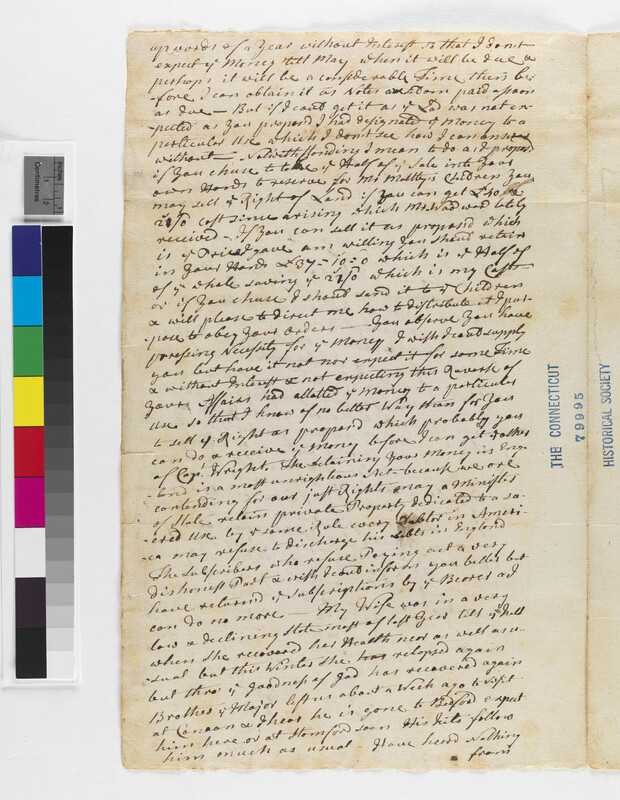 upwords of a Year without Interest so that I dont
expect ye Money till May when it will be due &
perhaps it will be a considerable Time then be-
-fore I can obtain it as Notes are seldom paid as soon
as due — But if I coud get it as ye Land was not ex-
-pected as You propos'd I had designated ye Money to a
particular Use which I dont see how I can answer
without — Notwithstanding I mean to do as I propos'd
if You chuse to take ye Half of ye Sale into Your
own Hands to reserve for Mr Children You
may sell ye Right of Land if You can get £40 &
21/0 cost since arising which Mr had word lately
received — If You can sell it as propos'd which
is ye Price I gave am willing You shoud retain
in Your Hands £37-10-0 which is ye Half of
of ye whole saving ye 21/0 which is my Cost
or if You chuse I shoud send it to ye Children
& will please to direct me how to distribute it I pur-
-pose to obey Your Orders — You observe You have
pressing Necessity for ye Money I wish I coud supply
you but have it not nor expect it for some Time
& without Interest & not expecting this Reverse of
Your Affairs had allotted ye Money to a particular
Use so that I know of no better Way than for You
to sell ye Right as propos'd which probably you
can do & receive ye Money before I can get
of Capt Wright. The retaining Your Money in Eng-
-land is a most unrighteous Act - because we are
contending for our just Rights may a Minister
of State retain private Property dedicated to a sa-
-cred Use by ye same Rule every Debtor in Ameri-
-ca may refuse to discharge his Debts in England
The Subscribers who refuse Paying act a very
dishonest Part & wish I coud inform you better but
have returnd ye Subscriptions by ye Bearer as I
can do no more — My Wife was in a very
low & declining State most of last Year till ye Fall
when she recovered has Health near as well as u-
-sual but this Winter She has relapsed again
but thro' ye goodness of God has recovered again
Brother ye Major left us about a Week ago to visit
at Canaan & I hear he is gone to Bedford expect
him here or at Stamford soon His Fits follow
him much as usual - Have heard Nothing
from
THE CONNECTICUT
79995
HISTORICAL SOCIETY
Centimetres
Inches